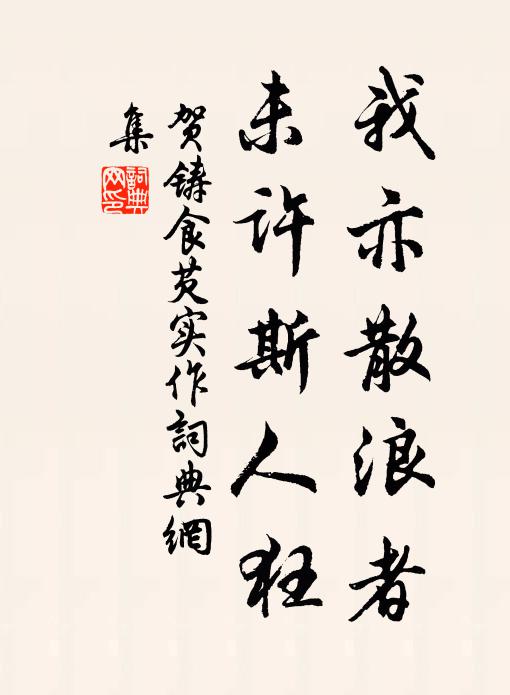 我亦散浪者
未许斯人狂
贺铸食芡实作詞典網
集
詞典
网印